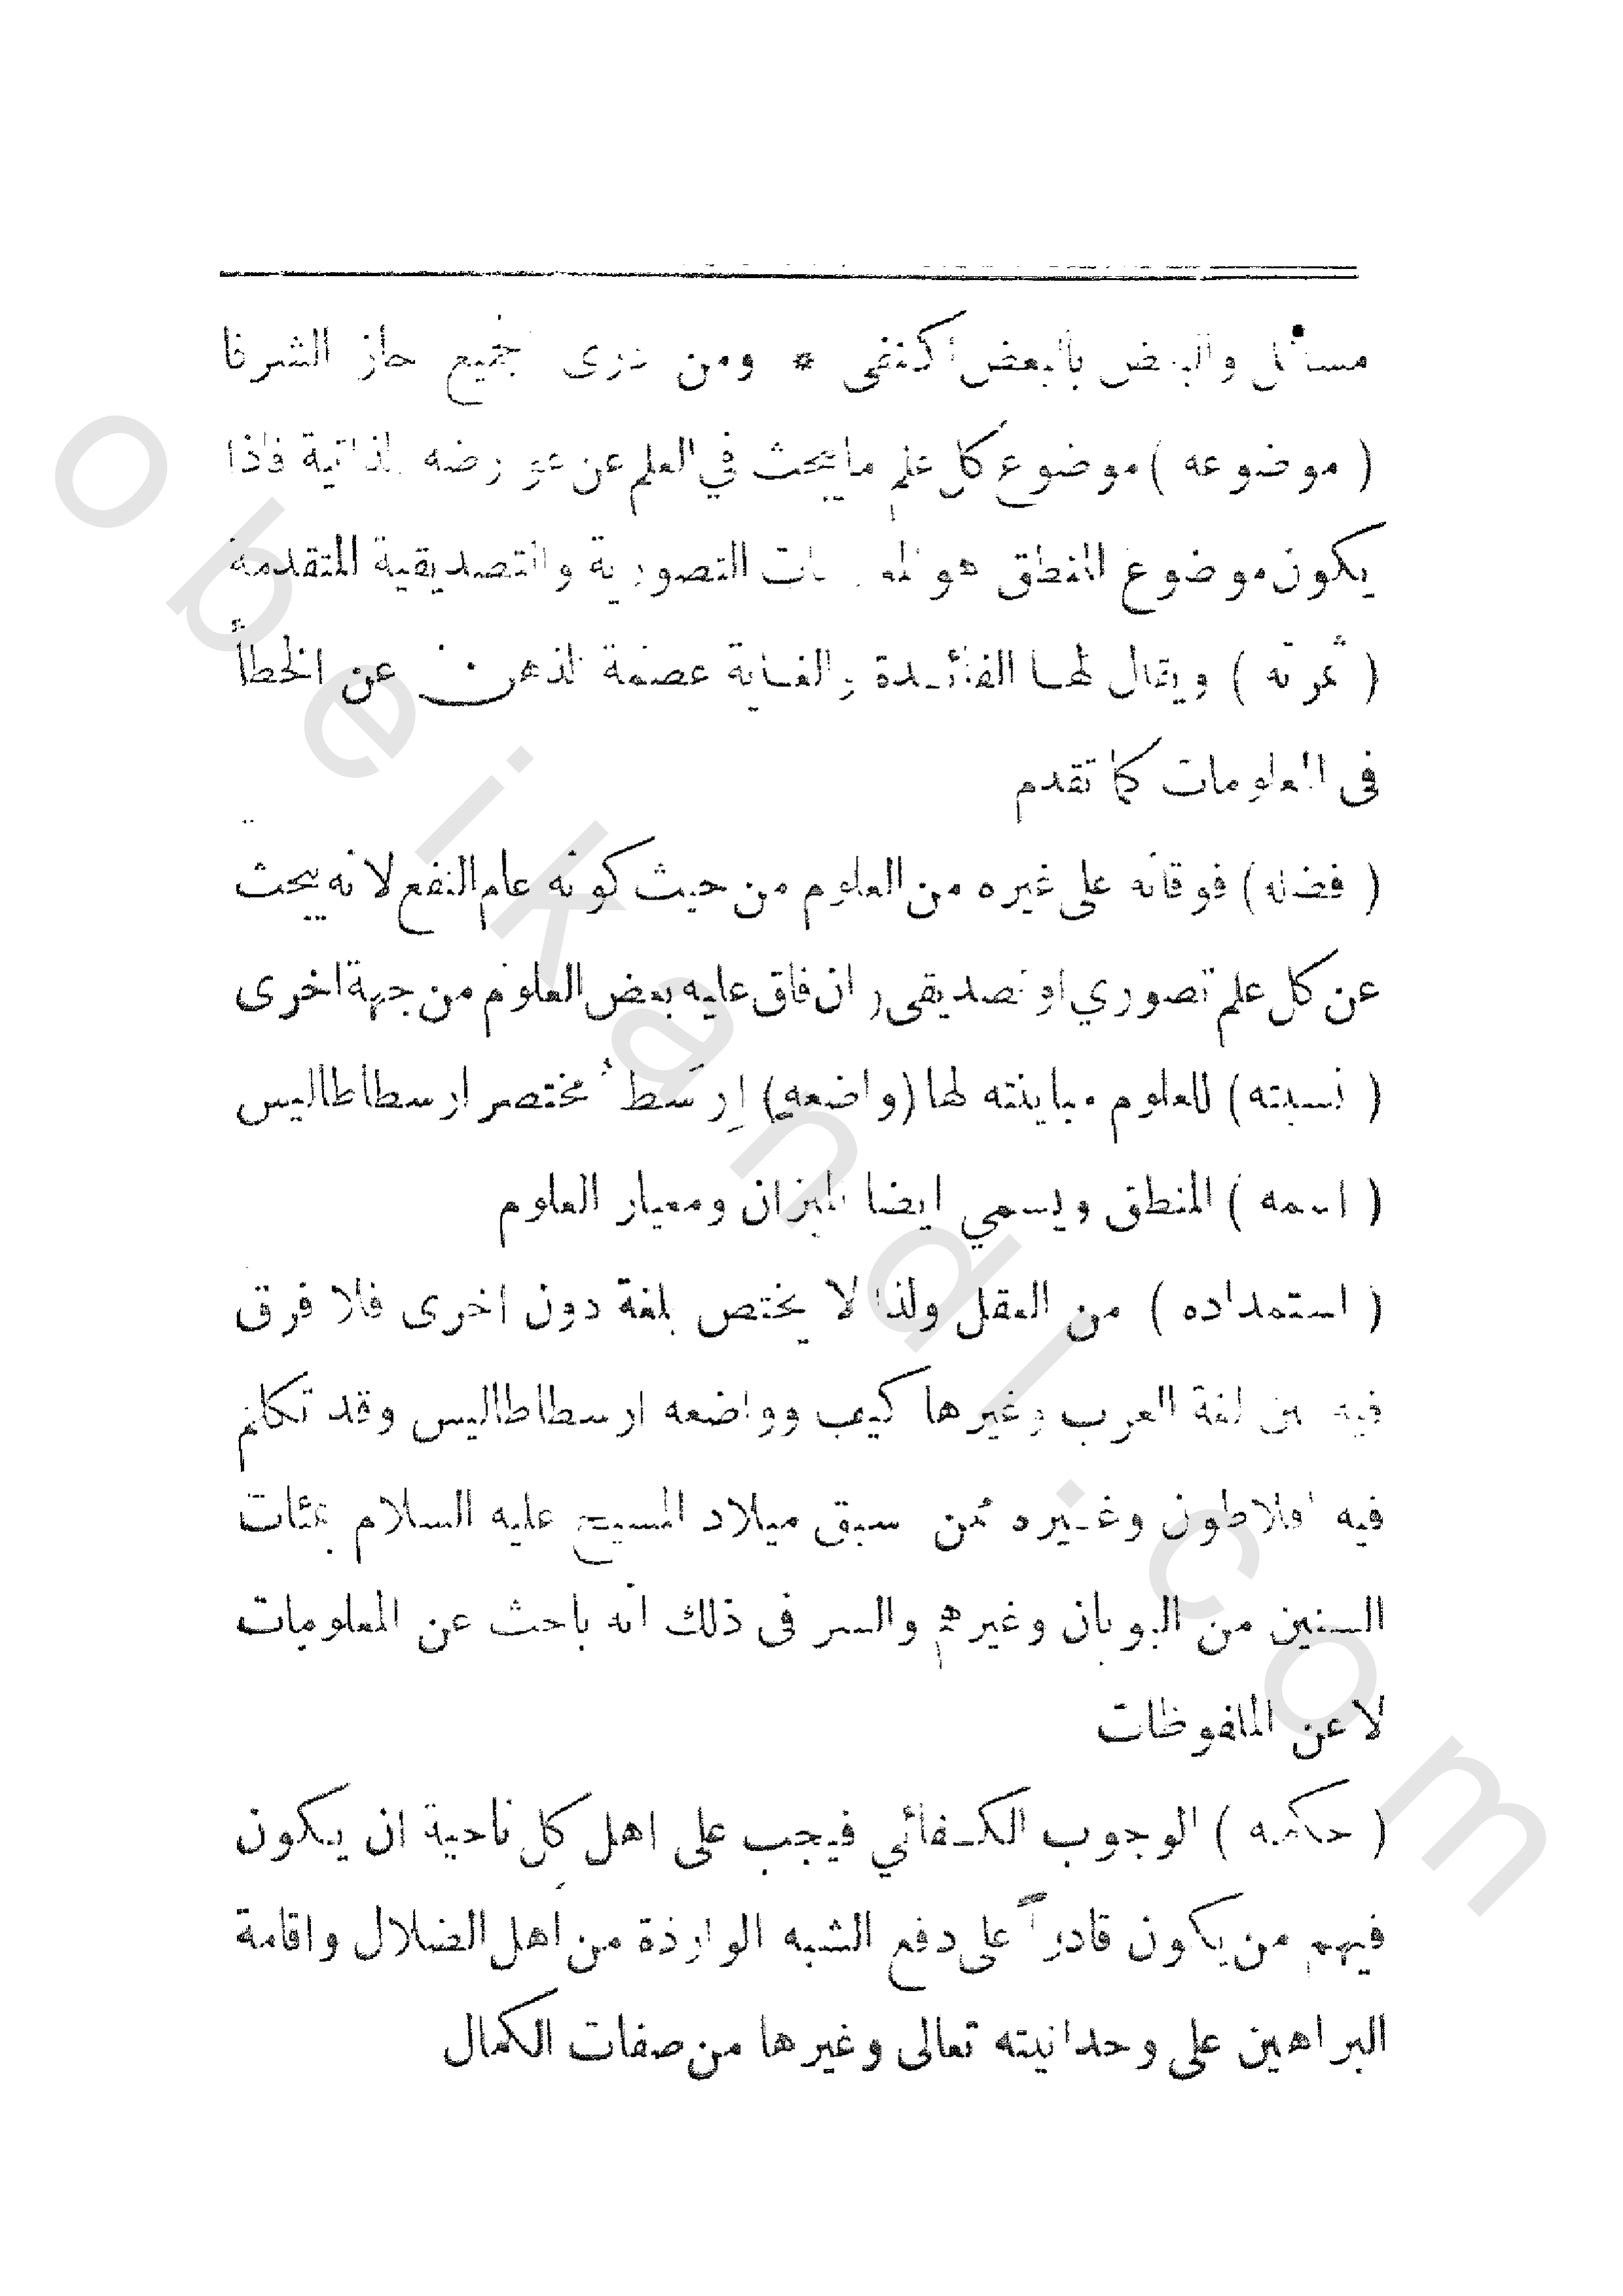 مسائل والبعض بالبعض اكتفى * ومن درى الجميع حاز الشرفا
( موضوعه ) موضوع كل علم مايبحث في العلم عن عوارضه الذاتية فاذا
يكون موضوع المنطق هو المعلومات التصورية والتصديقية المتقدمة
( ثمرته ) ويقال لها الفائدة والغاية عصمة الذهن عن الخطأ
فى المعلومات كما تقدم
( فضله ) فوقانه على غيره من العلوم من حيث كونه عام النفع لانه يبحث
عن كل علم تصوري او تصديقى وان فاق عليه بعض العلوم من جهة اخرى
( نسبته ) للعلوم مباينته لها ( واضعه ) إرسطُ مختصر ارسطاطاليس
( اسمه ) المنطق ويسمي ايضا الميزان ومعيار العلوم
( استمداده ) من العقل ولذا لا يختص بلغة دون اخرى فلا فرق
فيه بين لغة العرب وغيرها كيف وواضعه ارسطاطاليس وقد تكلم
فيه افلاطون وغيره ممن سبق ميلاد المسيح عليه السلام بمئات
السنين من اليونان وغيرهم والسر فى ذلك انه باحث عن المعلومات
لا عن الملفوظات
( حكمه ) الوجوب الكفائي فيجب على اهل كل ناحية ان يكون
فيهم من يكون قادراً على دفع الشبه الواردة من اهل الضلال واقامة
البراهين على وحدانيته تعالى وغيرها من صفات الكمال
obeikandi.com